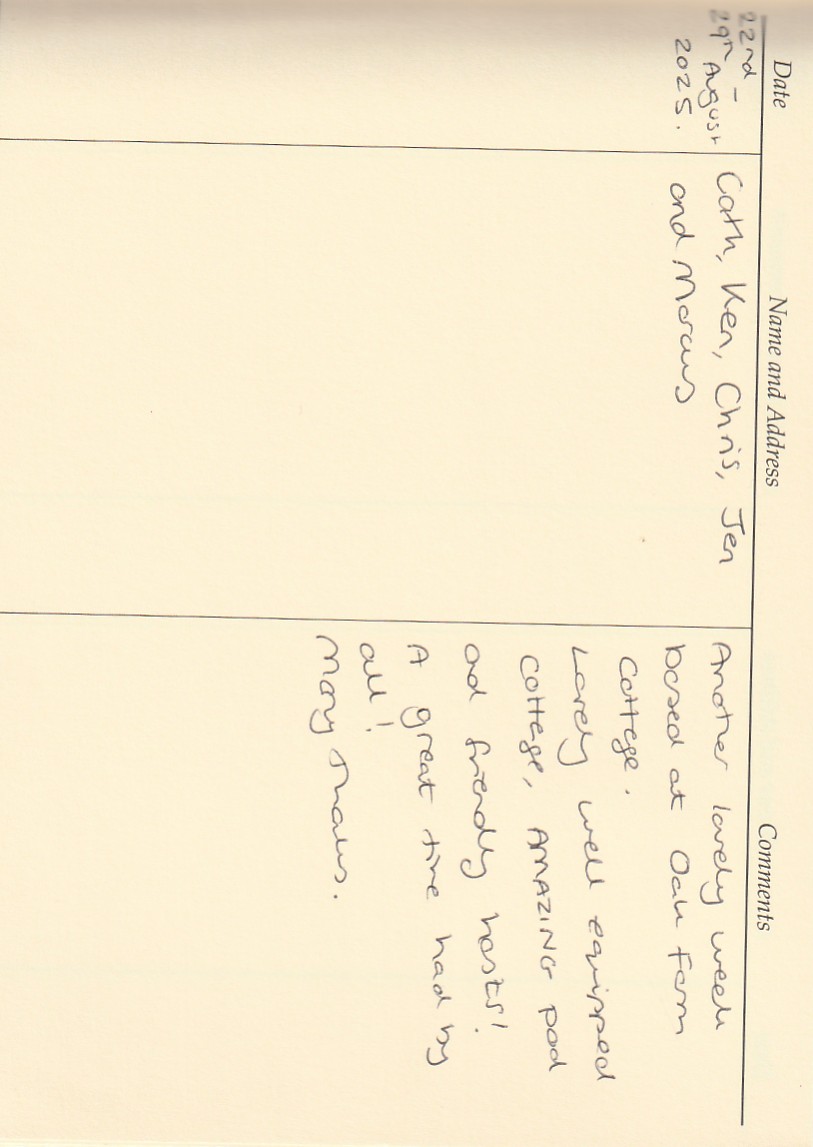 Date Name and Address Comments
22nd -
29th August
2025.
Cath, Ken, Chris, Jen
and Marcus
Another lovely week
based at Oak Farm
Cottage.
Lovely well equipped
cottage, AMAZING pod
and friendly hosts!
A great time had by
all!
Many thanks.